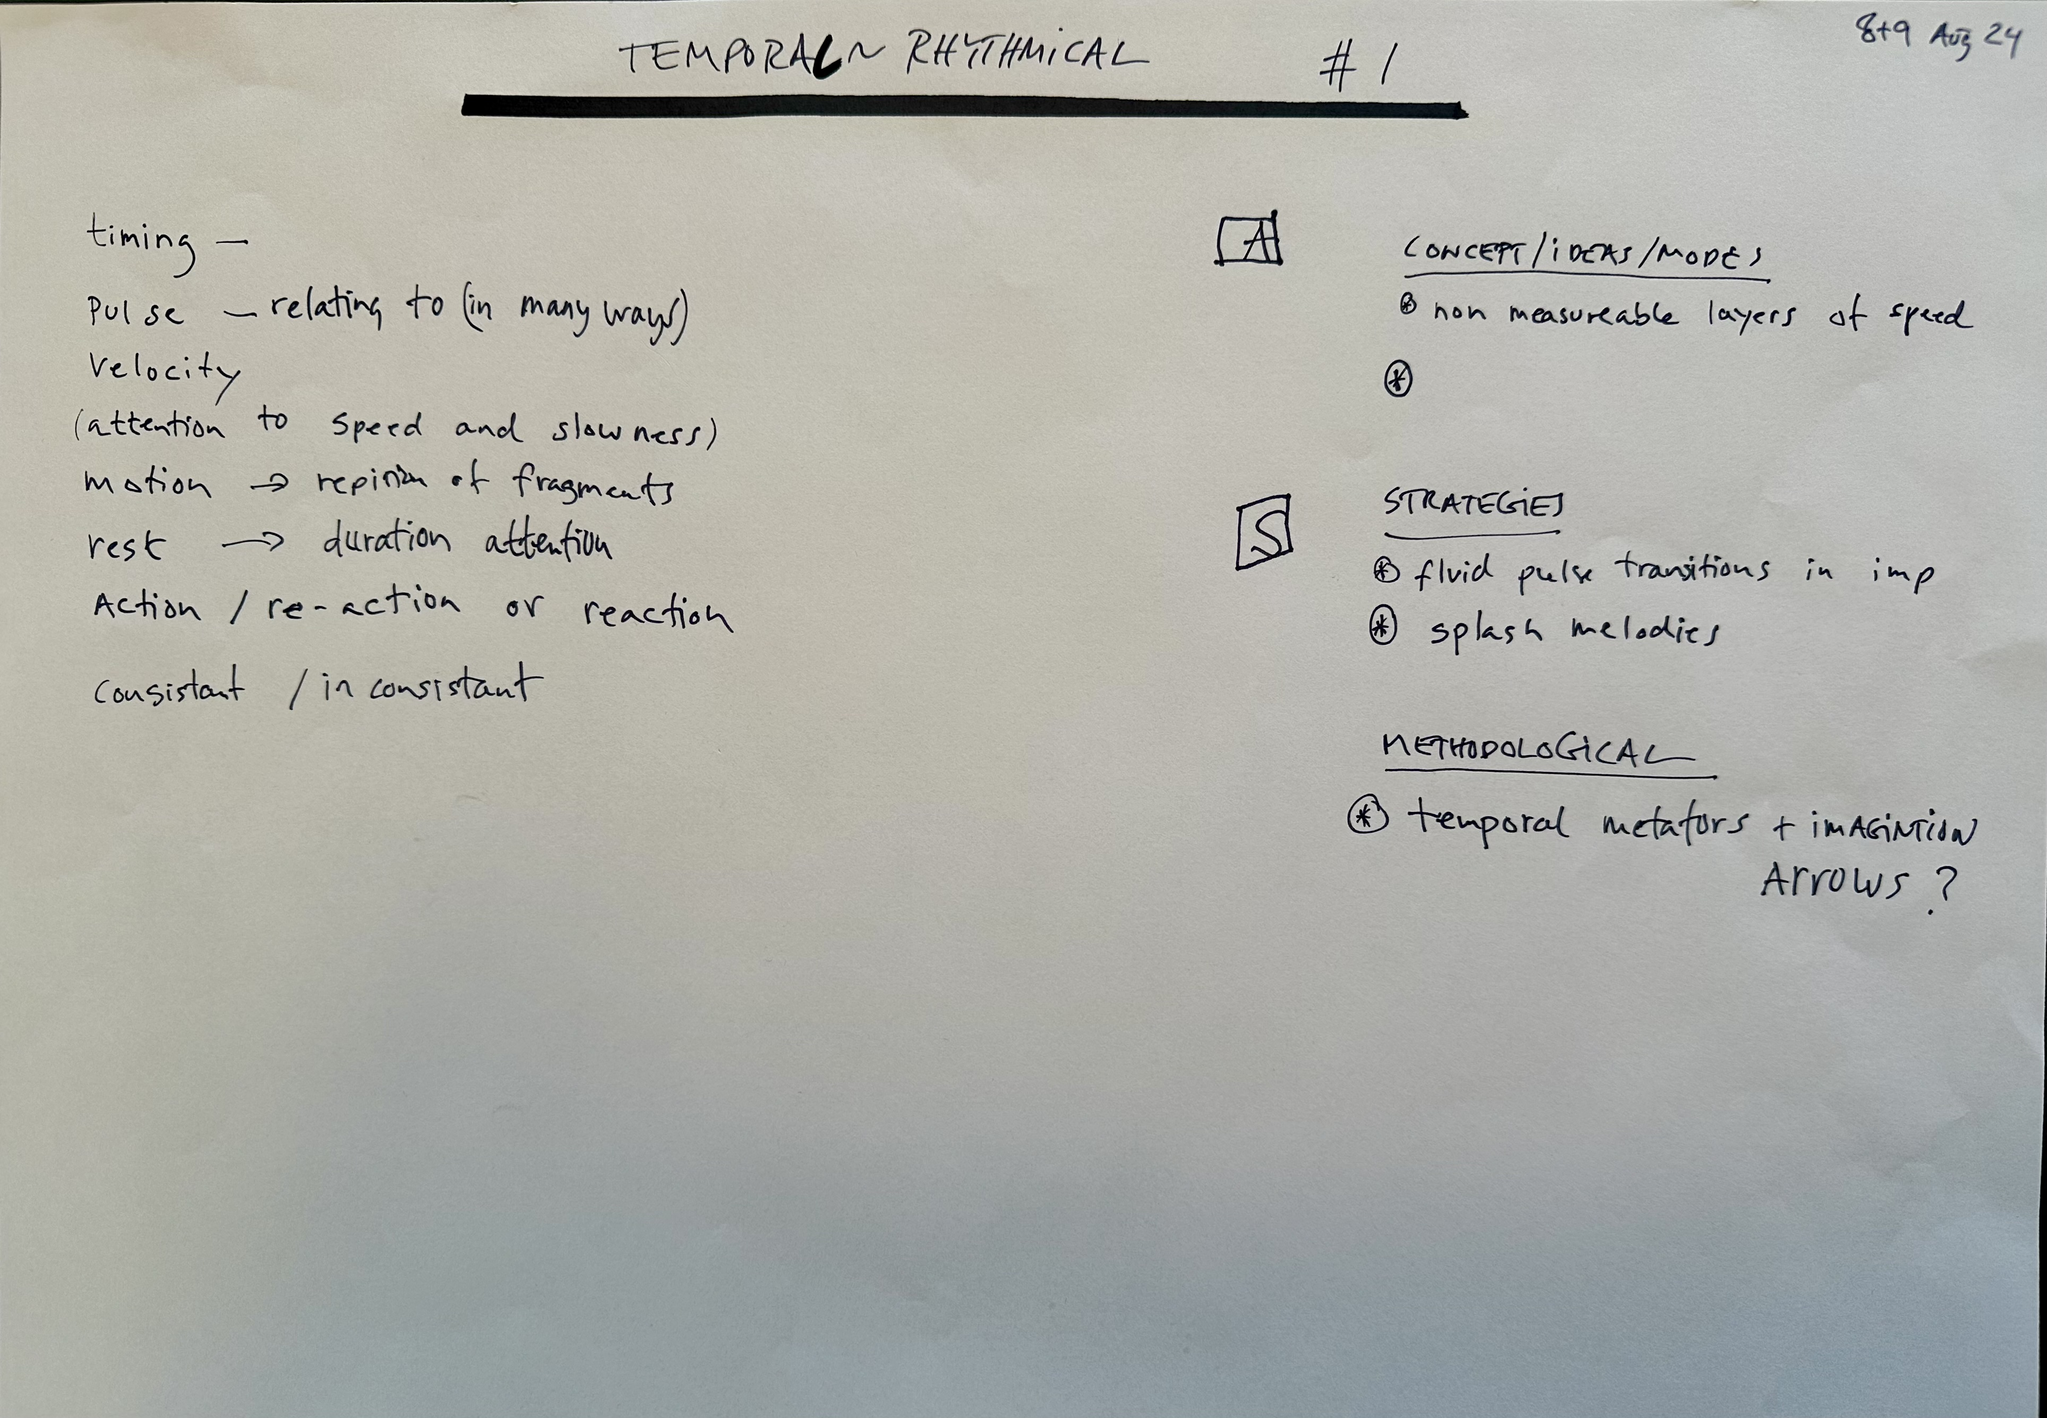 TEMPORAL ~ RHYTHMICAL #1
8+9 Aug 24
timing —
Pulse — relating to (in many ways)
Velocity
(attention to speed and slowness)
motion → of fragments
rest → duration attention
Action / re-action or reaction
consistant / inconsistant
A
CONCEPT/IDEAS/MODES
* non measureable layers of speed
*
S
STRATEGIES
* fluid pulse transitions in imp
* splash melodies
METHODOLOGICAL
* temporal metafors + imAGiNTiON
Arrows ?